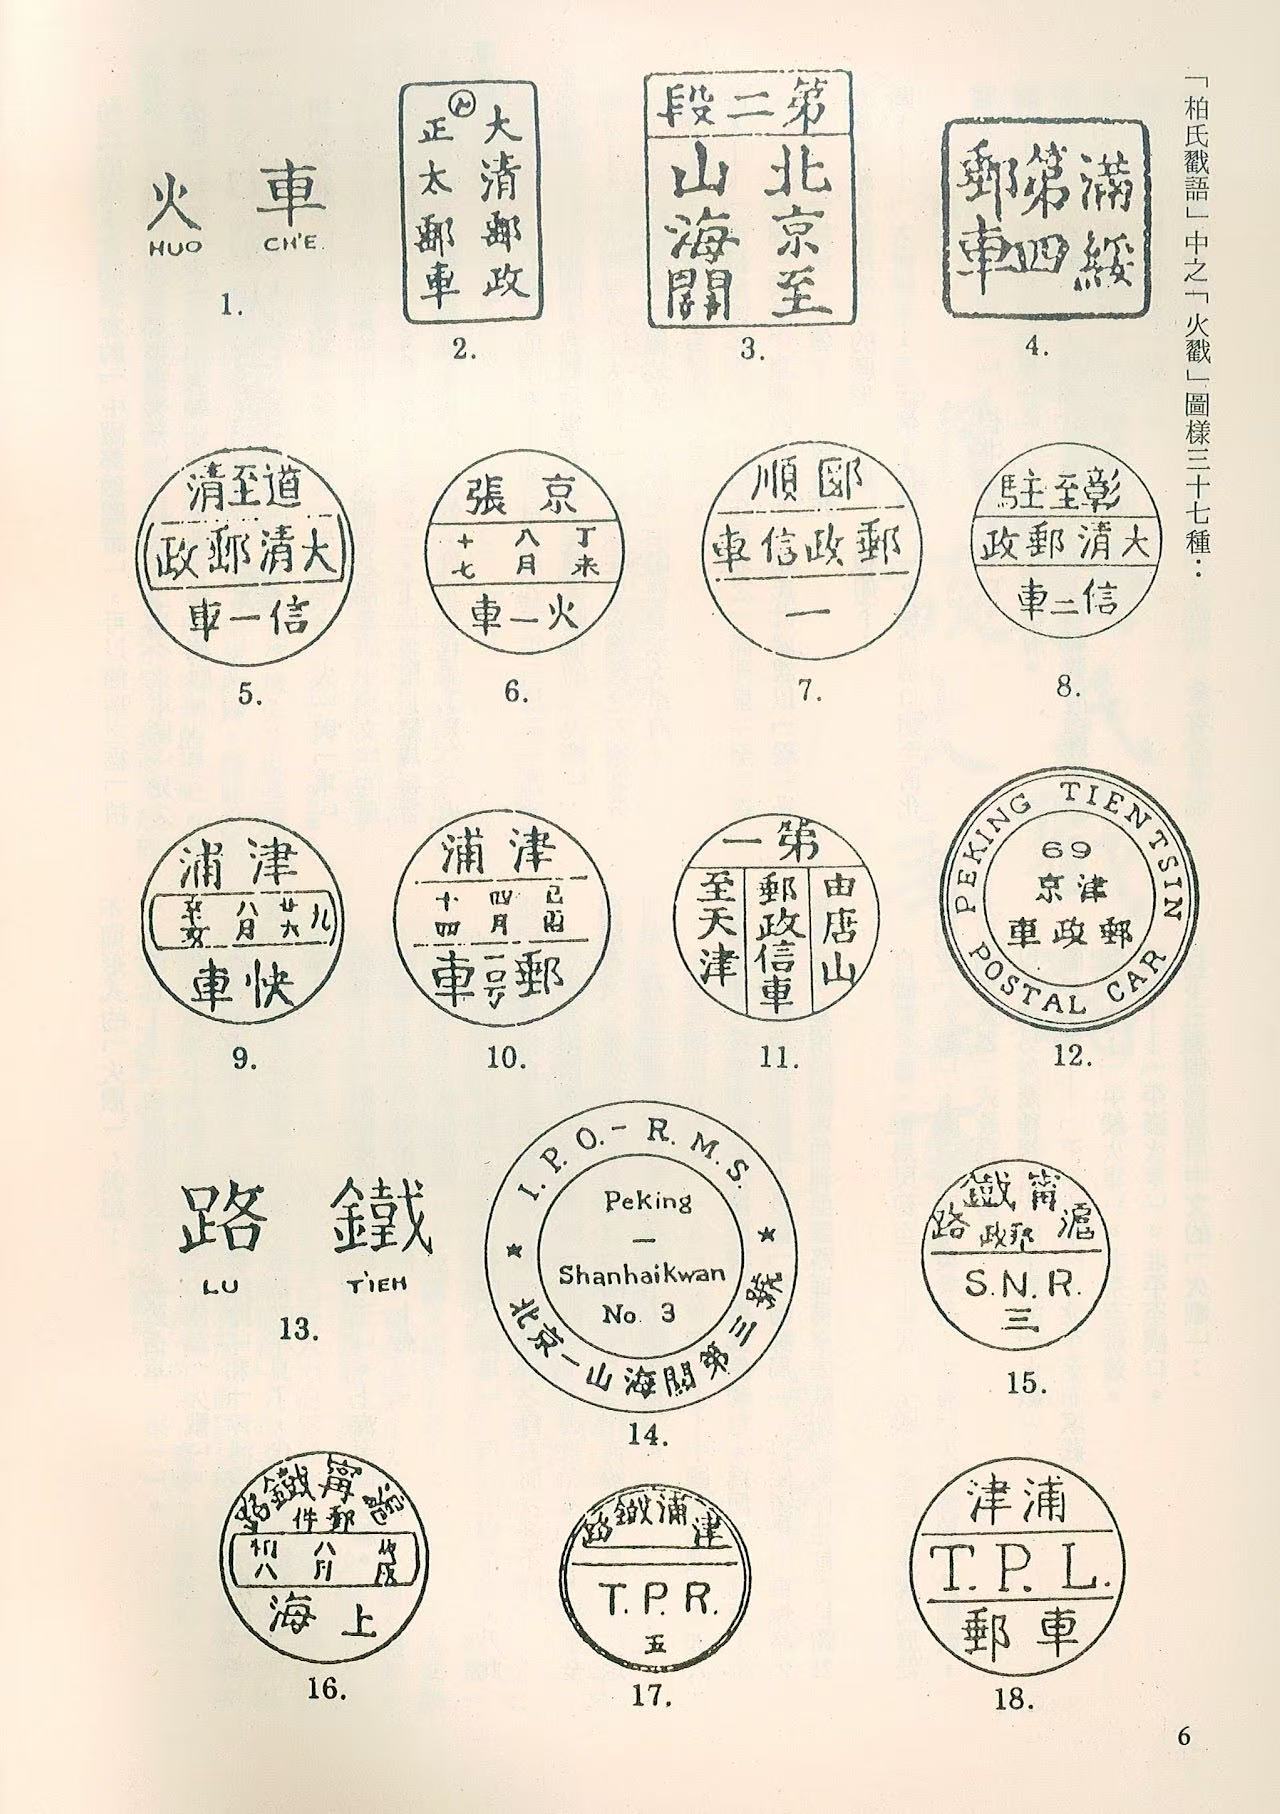 「柏氏戳語」中之「火戳」圖樣三十七種：
火 車
HUO CH'E.
1.
大清郵政
正太郵車
2.
第二段
北京至
山海關
3.
滿綏
第四
郵車
4.
道至清
大清郵政
信一車
5.
京張
丁未 八月 十七
火一車
6.
順
郵政信車
一
7.
彰至駐
大清郵政
信二車
8.
津浦
九 廿六 八月 辛亥
快車
9.
津浦
己酉 四月 十四
郵 車
10.
第一
由 山
郵政信車
至天津
11.
PEKING TIENTSIN
69
津京
郵政車
POSTAL CAR
12.
鐵路
LU T'IEH
13.
I.P.O.-R.M.S.
Peking
—
Shanhaikwan
No. 3
北京—山海關第三號
14.
滬甯鐵路
郵政
S.N.R.
三
15.
滬甯鐵路
郵件
八月 初八
上海
16.
津浦鐵路
T.P.R.
五
17.
津浦
T.P.L.
郵車
18.
6